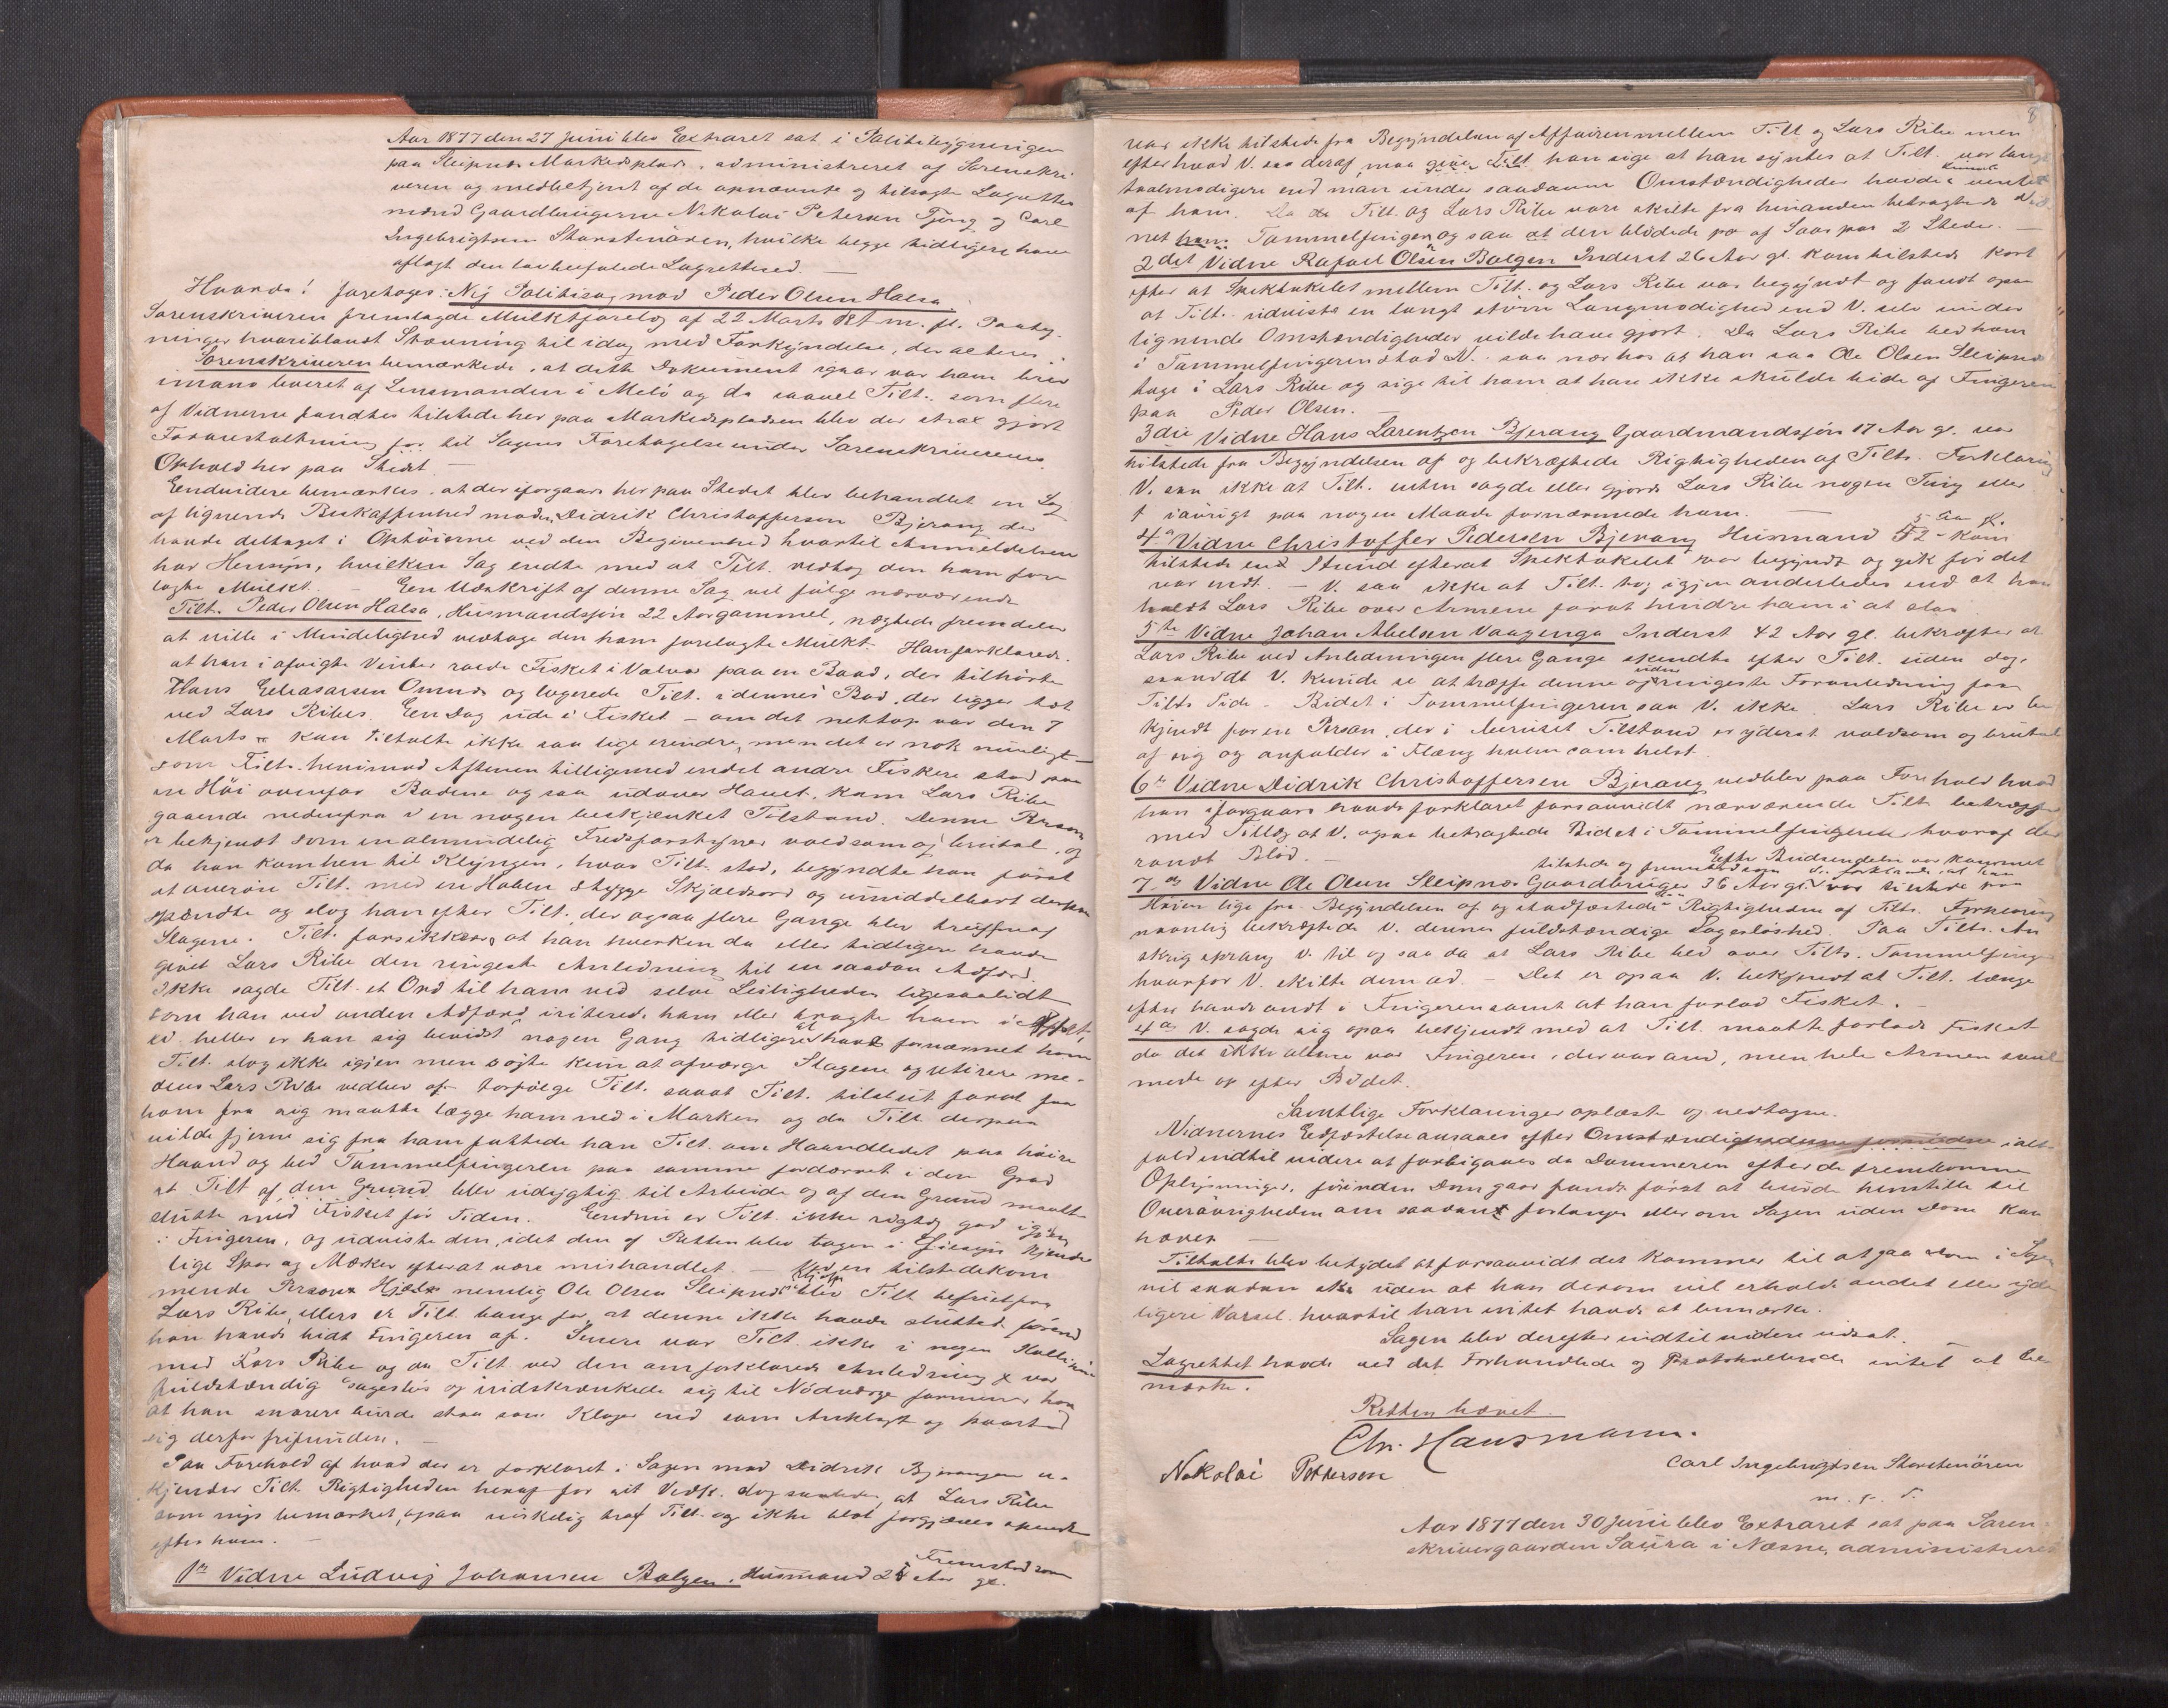 Aar 1877 den 27 Juni blev Extraret sat i Politibygningen
paa Sleipnes Markedsplads, administreret af Sorenskri
veren og medbetjent af de opnævnte og tilsagte Lagrettes
mænd Gaardbrugerne Nikolai Petersen Tjong og Carl
Ingebrigtsen Storstenören, hvilke begge tidligere have
aflagt den lovbefalede Lagretteed. —
Hvorda! foretoges: Nij Politisag mod Peder Olsen Halsa
Sorenskriveren fremlagde Mulktforelæg af 22 Marts d.A. m. fl. Paateg
ninger hvoriblandt Stævning til idag med Forkyndelse, der acteres.
Sorenskriveren bemærkede, at dette Dokument igaar var ham brev
imans leveret af Lensmanden i Melö og da saavel Tilt. som flere
af Vidnerne fandtes tilstede her paa Markedspladsen blev der strax gjort
Foranstaltning for til Sagens Foretagelse under Sorenskriverens
Ophold her paa Stedet. —
Endvidere bemærkes, at der iforgaars her paa Stedet blev behandlet en Sag
af lignende Beskaffenhed mod Didrik Christoffersen Bjerang der
havde deltaget i Optöierne ved den Begivenhed hvortil Anmeldelsen
har Hensyn, hvilken Sag endte med at Tilt. vedtog den ham fore
lagte Mulkt. — Een Udskrift af denne Sag vil fölge nærværende
Tilt. Peder Olsen Halsa, Husmandssön 22 Aar gammel, nægtede fremdeles
at ville i Mindelighed vedtage den ham forelagte Mulkt. Han forklarede.
at han i afvigte Vinter roede Fisket i Valvær paa en Baad, der tilhörte
Hans Eliasarsen Omnes og logerede Tilt. i dennes Bod, der ligger tæt
ved Lars Ribes. Een Dag ude i Fisket — om det netop var den 7
Marts — kan Tiltalte ikke saa lige erindre, men det er nok muligt —
som Tilt. henimod Aftenen tilligemed endel andre Fiskere stod paa
en Höi ovenfor Boderne og saa udover Havet, kom Lars Ribe
gaaende nedenfra i en nogen beskjænket Tilstand. Denne Person
er bekjendt som en almindelig Fredsforstyrrer voldsom og brutal, og
da han kom hen til Klyngen, hvor Tilt. stod, begyndte han först
at overöse Tilt. med en Haben Stygge Skjældsord og umiddelbart derpaa
spændte og slog han efter Tilt. der ogsaa flere Gange blev truffen af
Slagene. Tilt. forsikkrer, at han hverken da eller tidligere havde
givet Lars Ribe den ringeste Anledning til en saadan Adfærd.
Ikke sagde Tilt. et Ord til ham ved selve Leiligheden ligesaalidt
som han ved anden Adfærd irriterede ham eller bragte ham i
ei heller er han sig bevidst nogen Gang tidligere at have fornærmet ham
Tilt. slog ikke igjen men sögte kun at afværge Slagene og retirere me-
dens Lars Ribe vedblev at forfölge Tilt. saaat Tilt. tilslut forat faa
ham fra sig maatte lægge ham ned i Marken og da Tilt. derpaa
vilde fjerne sig fra ham fattede han Tilt. om Haandledet paa höire
Haand og bed Tommelfingeren paa samme fordærvet i den Grad
at Tilt. af den Grund blev udygtig til Arbeide og af den Grund maatte
slutte med Fisket för Tiden. Endnu er Tilt. ikke rigtig god igjen
i Fingeren, og udviste den, idet den af Retten blev tagen i Öiesyn kjende
lige Spor og Mærker efter at være mishandlet. — Ved en tilstedekom
mende Persons Hjælp nemlig Ole Olsen Sleipnes blev Tilt. befriet fra
Lars Ribe, ellers er Tilt. bange for, at denne ikke havde sluttet förend
han havde bidt Fingeren af. Senere var Tilt. ikke i nogen Kollision
med Lars Ribe og da Tilt. ved den omforklarede Anledning var
fuldstændig sageslös og indskrænkede sig til Nödværge formener han
at han snarere burde staa som Klager end som Anklagt og paastod
sig derfor frifunden. —
Paa Forehold af hvad der er forklaret i Sagen mod Didrik Bjerangen er-
kjender Tilt. Rigtigheden heraf for sit Vedk. dog saaledes, at Lars Ribe
som nys bemærket, ogsaa virkelig traf Tilt. og ikke blot forgjæves spændte
efter ham. —
Fremstod som
1ste Vidne Ludvig Johansen Bolgen, Husmand 25 Aar gl.
8
var ikke tilstede fra Begyndelsen af Affairen mellem Tilt. og Lars Ribe men
efter hvad V. saa deraf, maa han sige at han syntes at Tilt. var langt
taalmodigere end man under saadanne Omstændigheder havde kunnet ventet
af ham. Da de Tilt. og Lars Ribe vare skilte fra hinanden betragtede Vid
net hans Tommelfinger og saa at den blödede paa af Saar paa 2 Steder. —
2det Vidne Rafael Olsen Bolgen Inderst 26 Aar gl. kom tilstede kort
efter at Spektakelet mellem Tilt. og Lars Ribe var begyndt og fandt ogsaa
at Tilt. udviste en langt större Langmodighed end V. selv under
lignende Omstændigheder vilde have gjort. Da Lars Ribe bed ham
i Tommelfingeren stod V. saa nær hos at han saa Ole Olsen Sleipnes
tage i Lars Ribe og sige til ham at han ikke skulde bide af Fingeren
paa Peder Olsen. —
3die Vidne Hans Larentzen Bjerang Gaardmandssön 17 Aar gl. var
tilstede fra Begyndelsen af og bekræftede Rigtigheden af Tilts. Forklaring
V. saa ikke at Tilt. enten sagde eller gjorde Lars Ribe nogen Ting eller
iövrigt paa nogen Maade fornærmede ham. —
4de Vidne Christoffer Pedersen Bjerang Husmand 52 Aar gl. kom
tilstede en Stund efterat Spektakelet var begyndt og gik för det
var endt. — V. saa ikke at Tilt. tog igjen anderledes end at han
holdt Lars Ribe over Armene forat hindre ham i at slaa
5te Vidne Johan Abelsen Vaagenga Inderst 42 Aar gl. bekræfter at
Lars Ribe ved Anledningen flere Gange skendte efter Tilt. uden dog,
saavidt V. kunde se at træffe denne og uden ringeste Foranledning fra
Tilts. Side. Bidet i Tommelfingeren saa V. ikke. Lars Ribe er be
kjendt for en Person, der i beruset Tilstand er yderst voldsom og brutal
af sig og anfalder i Flæng hvem som helst.
6te Vidne Didrik Christoffersen Bjerang vedblev paa Forehold hvad
han iforgaars havde forklaret forsaavidt nærværende Tilt. betræffer
med Tillæg at V. ogsaa betragtede Bidet i Tommelfingeren hvoraf der
randt Blod. —
Efter Budsendelse var kommet
tilstede og fremstod som
7de Vidne Ole Olsen Sleipnes Gaardbruger 36 Aar gl. var tilstede paa
Höien lige fra Begyndelsen af og stadfæstede Rigtigheden af Tilts. Forklaring
navnlig bekræftede V. dennes fuldstændige Sageslöshed. Paa Tilts. An
skrig sprang V. til og saa da at Lars Ribe bed over Tilts. Tommelfinger
hvorfor V. skilte dem ad. — Det er ogsaa V. bekjendt at Tilt. længe
efter havde ondt i Fingeren samt at han forlod Fisket. —
4de V. sagde sig ogsaa bekjendt med at Tilt. maatte forlade Fisket
da det ikke alene var Fingeren, der var ond, men hele Armen svul
mede op efter Bidet.
Samtlige Forklaringer oplæste og vedtagne.
Vidnernes Eedfæstelse ansaaes efter Omstændighederne ialt-
fald indtil videre at forbigaaes da Dommeren efter de fremkomne
Oplysninger, förinden Dom gaar fandt först at burde henstille til
Överövrigheden om saadant forlanges eller om Sagen uden Dom kan
hæves —
Tiltalte blev betydet at forsaavidt det kommer til at gaa Dom i Sagen
vil saadan ske uden at han derom vil erholde andet eller yder
ligere Varsel, hvortil han intet havde at bemærke.
Sagen blev derefter indtil videre udsat.
Lagrettet havde ved det Forhandlede og Protokollerede intet at be
mærke.
Retten hævet.
Chr. Hansmann.
Nokolai Petterson
Carl Ingebrigtsen Storstenören
m. f. P.
Aar 1877 den 30 Juni blev Extraret sat paa Soren
skrivergaarden Saura i Næsne, administreret